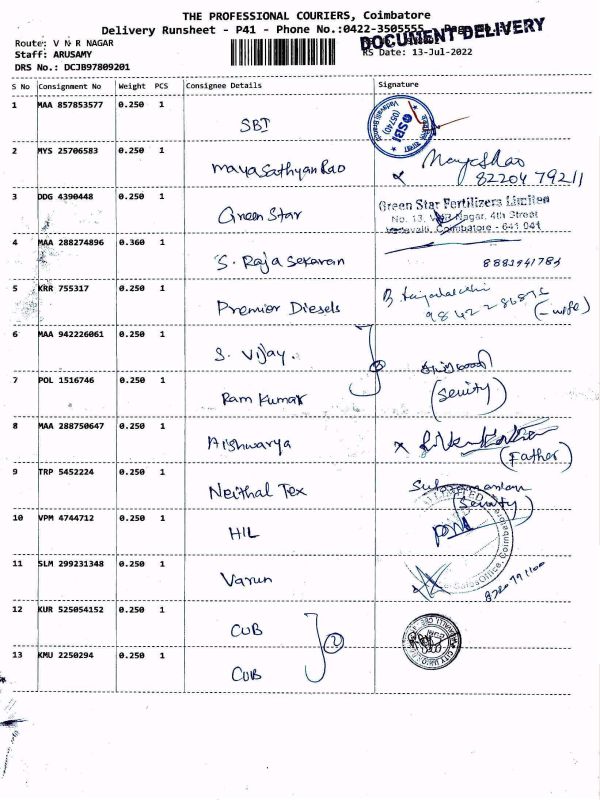 THE PROFESSIONAL COURIERS, Coimbatore
Delivery Runsheet - P41 - Phone No.:0422-3505555
DOCUMENT DELIVERY
Route: V N R NAGAR
Staff: ARUSAMY
RS Date: 13-Jul-2022
DRS No.: DCJB97809201
S No Consignment No Weight PCS Consignee Details Signature
1 MAA 857853577 0.250 1 SBI
SBI
2 MYS 25706583 0.250 1 Maya Sathyan Rao
8220479211
3 DDG 4390448 0.250 1 Green Star
Green Star Fertilizers Limited
Nagar, 4th Street
Coimbatore - 641 041
4 MAA 288274896 0.360 1 S. Raja Sekaran
5 KRR 755317 0.250 1 Premier Diesels
(-wife)
6 MAA 942226061 0.250 1 S. Vijay.
7 POL 1516746 0.250 1 Ram Kumar
8 MAA 288750647 0.250 1 Aishwarya
(Father)
9 TRP 5452224 0.250 1 Neithal Tex
10 VPM 4744712 0.250 1 HIL
11 SLM 299231348 0.250 1 Varun
12 KUR 525054152 0.250 1 CUB
2
13 KMU 2250294 0.250 1 CUB